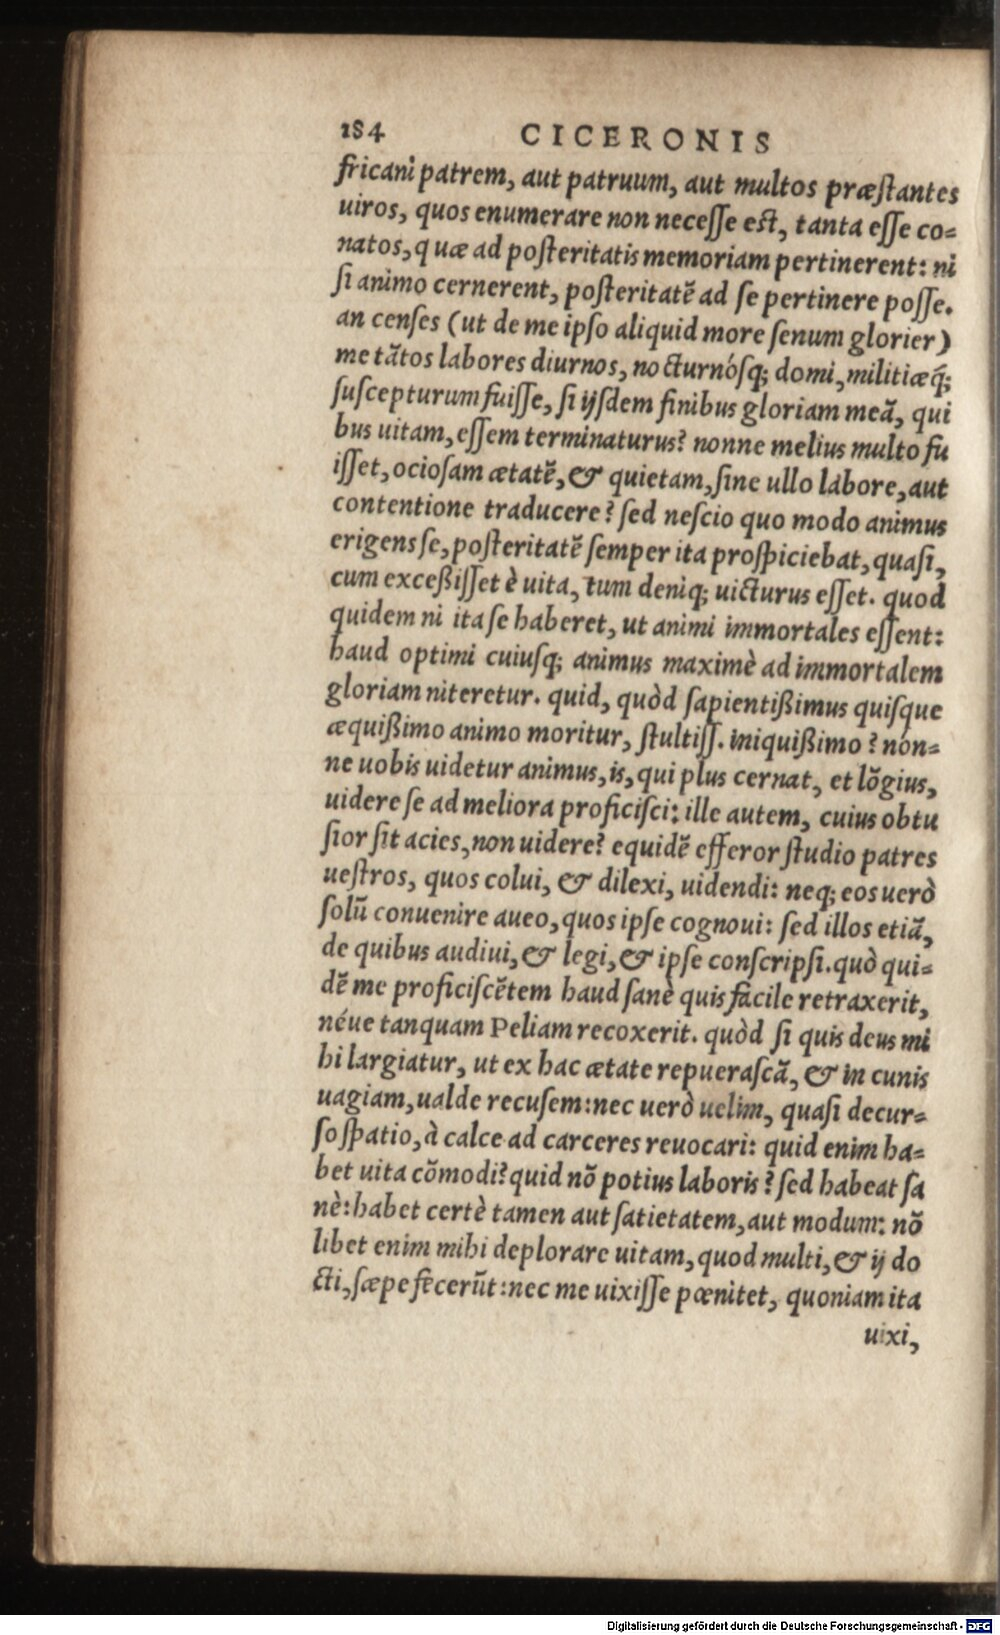 184 CICERONIS
fricani patrem, aut patruum, aut multos præſtantes
uiros, quos enumerare non neceſſe est, tanta eſſe co=
natos, quæ ad poſteritatis memoriam pertinerent: ni
ſi animo cernerent, poſteritatẽ ad ſe pertinere poſſe.
an cenſes (ut de me ipſo aliquid more ſenum glorier)
me tãtos labores diurnos, nocturnósq; domi, militiæq́;
ſuſcepturum fuiſſe, ſi ijſdem finibus gloriam meã, qui
bus uitam, eſſem terminaturus? nonne melius multo fu
iſſet, ocioſam ætatẽ, & quietam, ſine ullo labore, aut
contentione traducere? ſed neſcio quo modo animus
erigens ſe, poſteritatẽ ſemper ita proſpiciebat, quaſi,
cum exceßiſſet è uita, tum deniq; uicturus eſſet. quod
quidem ni ita ſe haberet, ut animi immortales eſſent:
haud optimi cuiuſq; animus maximè ad immortalem
gloriam niteretur. quid, quòd ſapientißimus quiſque
æquißimo animo moritur, ſtultiſſ. iniquißimo? nón=
ne uobis uidetur animus, is, qui plus cernat, et lõgius,
uidere ſe ad meliora proficiſci: ille autem, cuius obtu
ſior ſit acies, non uidere? equidẽ efferor ſtudio patres
ueſtros, quos colui, & dilexi, uidendi: neq; eos uerò
ſolũ conuenire aueo, quos ipſe cognoui: ſed illos etiã,
de quibus audiui, & legi, & ipſe conſcripſi. quò qui=
dẽ me proficiſcẽtem haud ſanè quis facile retraxerit,
néue tanquam Peliam recoxerit. quòd ſi quis deus mi
hi largiatur, ut ex hac ætate repueraſcã, & in cunis
uagiam, ualde recuſem: nec uerò uelim, quaſi decur=
ſo ſpatio, à calce ad carceres reuocari: quid enim ha=
bet uita cõmodi? quid nõ potius laboris? ſed habeat ſa
nè: habet certè tamen aut ſatietatem, aut modum: nõ
libet enim mihi deplorare uitam, quod multi, & ij do
cti, ſæpe fecerũt: nec me uixiſſe pœnitet, quoniam ita
uixi,
Digitalisierung gefördert durch die Deutsche Forschungsgemeinschaft - DFG